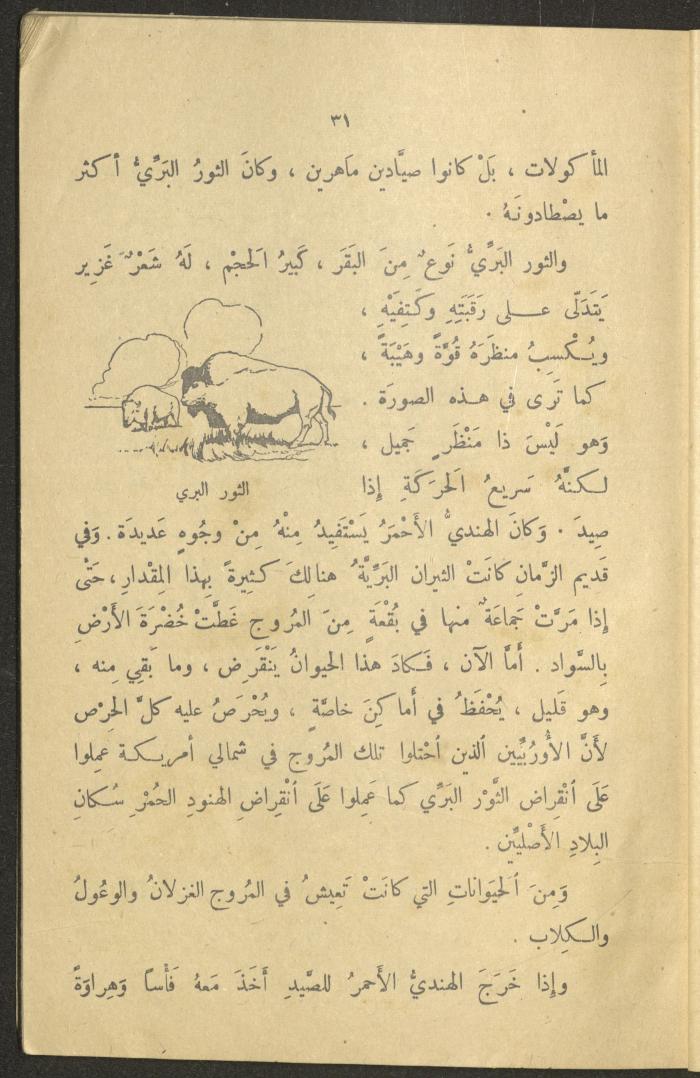 ٣١
المأكولات ، بَلْ كانوا صيَّادين ماَهرين ، وكانَ الثورُ البَرِّيُّ أكثر
ما يصْطادونَهُ .
والثور البَرِّيُّ نَوعٌ مِنَ البَقَر ، كَبيرُ الَحجْم ، لَهُ شَعْرٌ غَزِير
يَتَدَلّى عــلى رَقَبَتِهِ وكَتِفِيْهِ ،
ويُـكْسِبُ منظَرَهُ قُوَّةً وهَيْبَةً ،
كما تَرى في هـذه الصورَة .
وَهو لَيْسَ ذا مَنْظَرٍ جَميل ،
لـكنَّهُ سَريعُ الَحرَكَةِ إِذا
الثور البري
صِيدَ . وَكانَ الهنديُّ الأَحْمَرُ يَسْتَفِيدُ مِنْهُ مِنْ وجُوهٍ عَديدَة . وَفي
قَديم الزَّمانِ كانَتْ الثيران البَرِّيَّةُ هنالِكَ كثِيرةً بِهذا المِقْدارِ، حَتْى
إذا مَرَّتْ جَماعَةٌ منها في بُقْعَةٍ مِنَ المُروج غَطَّتْ خُضْرَةَ الأَرْضِ
بِالسَّواد . أَمَّا الآن ، فَـكادَ هذا الحيوانُ يَنْقَرِض ، وما بَقِي مِنه ،
وهو قَليل ، يُحْفَظُ في أَماكِنَ خاصَّةٍ ، ويُحْرَصُ عليه كلَّ الحِرْص
لأَنَّ الأُورُبِّيين ٱلذين ٱحْتلوا تلك المُروج في شمالي أمريـكـة عَمِلوا
عَلَى ٱنْقِراض الثَّوْر البَرِّي كما عَمِلوا عَلَى ٱنْقِراضِ الهنودِ الحُمْرِ سُـكانِ
البِلادِ الأَصْلِيِّين .
وَمِنَ ٱلَحيَواناتِ التي كانَتْ تَعِيشُ في المُروج الغزلانُ والوعُولُ
والـكِلاب .
وإِذا خَرَجَ الهنديُّ الأَحمرُ للصَّيدِ أَخَذَ مَعهُ فَأْساً وَهِراوَةً